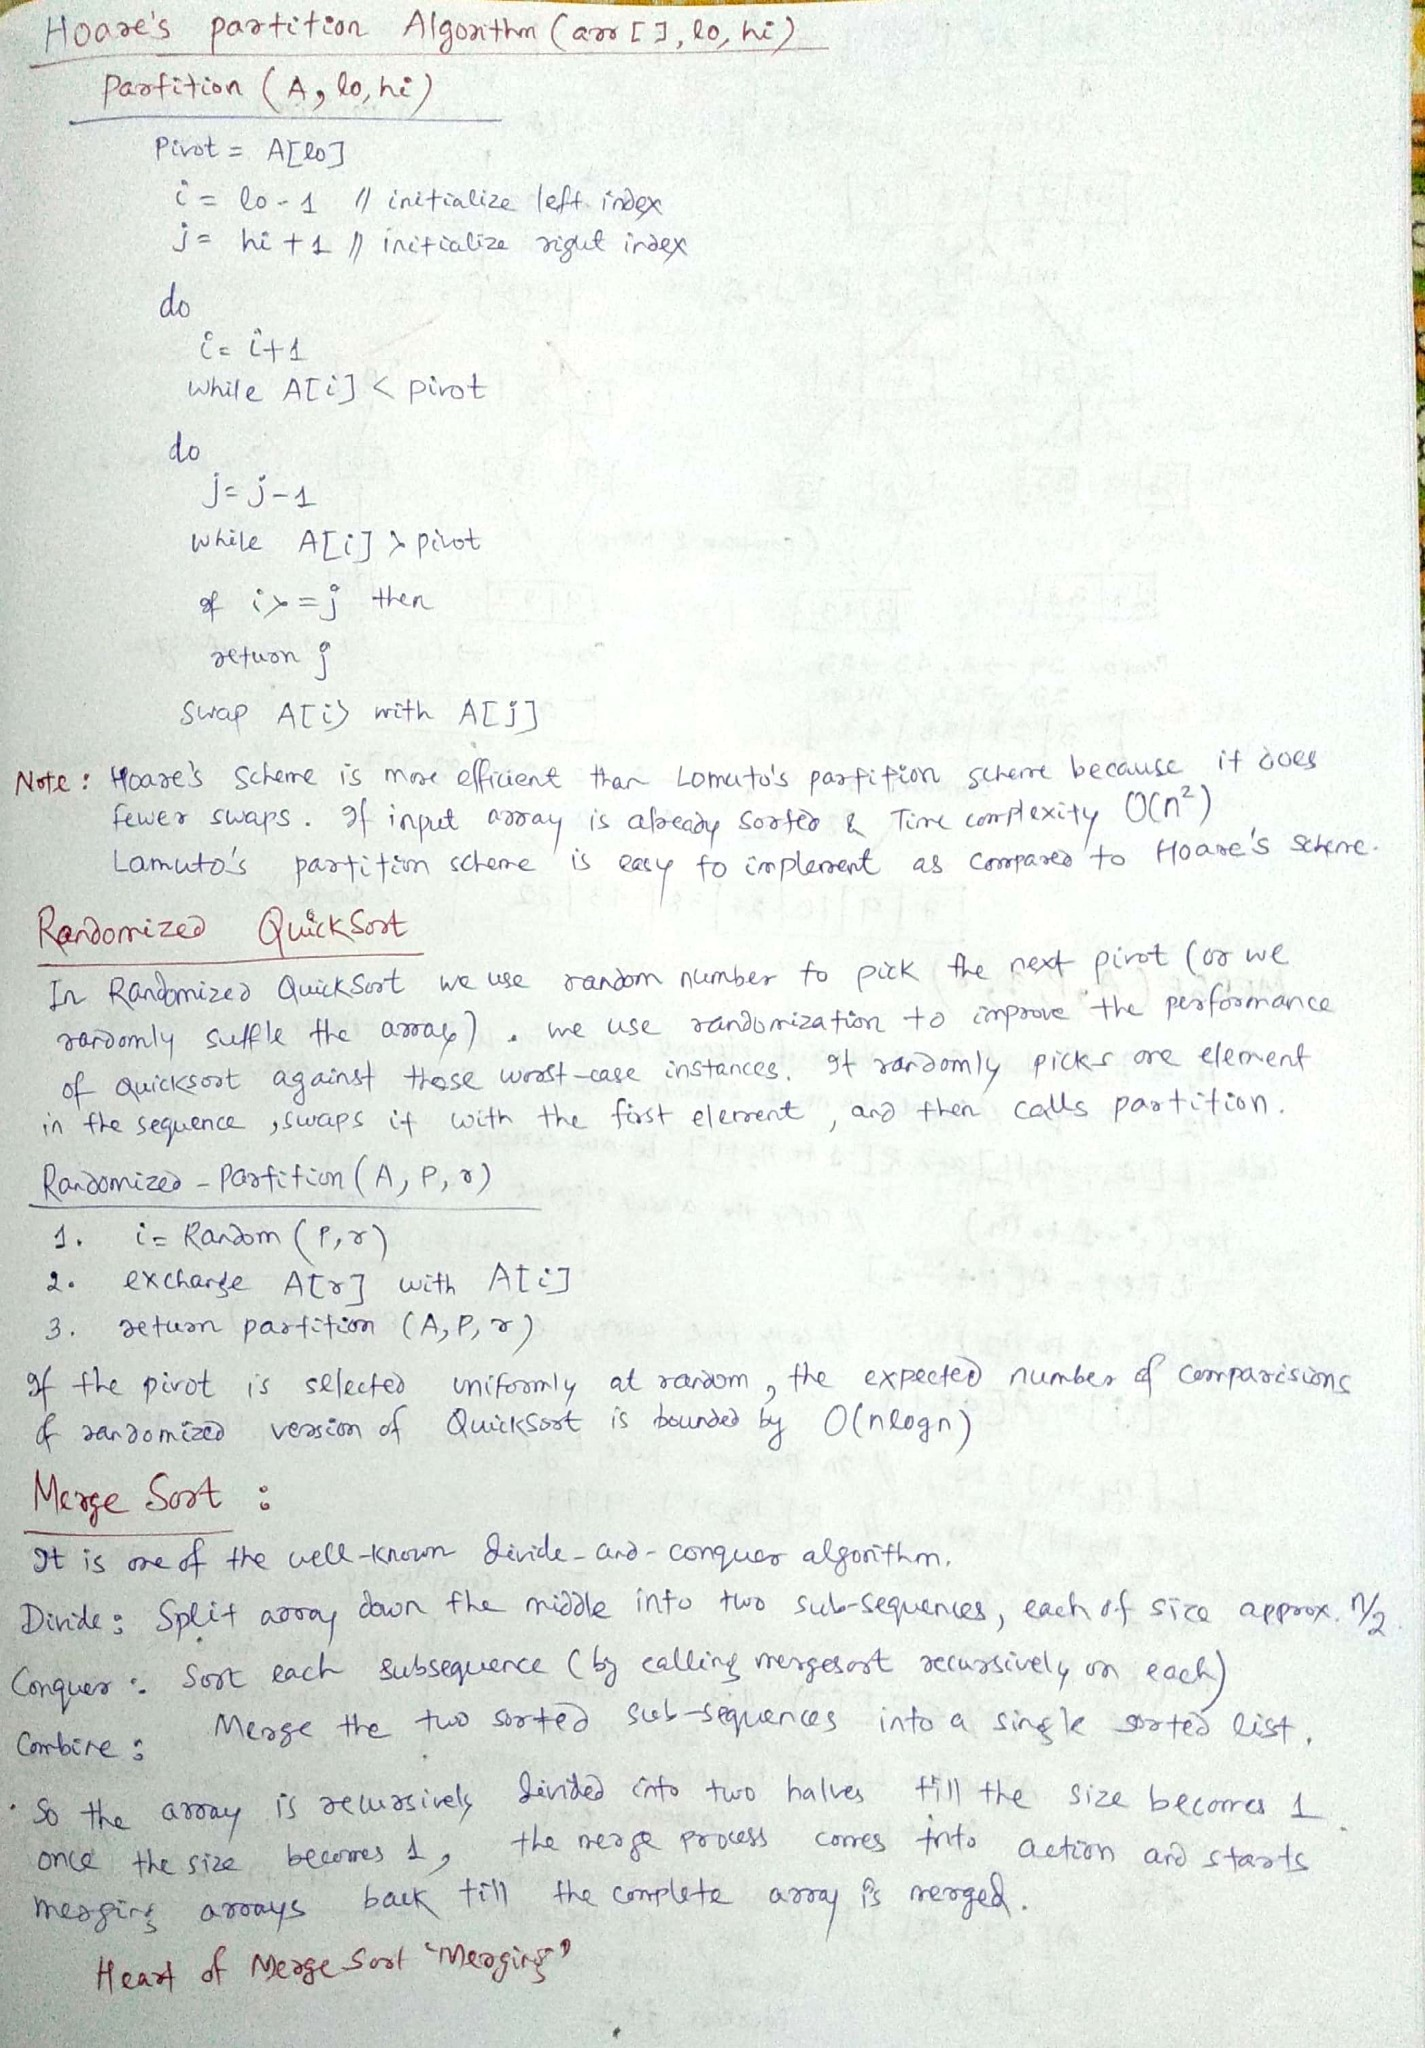 Hoare's partition Algorithm (arr [], lo, hi)
Partition (A, lo, hi)
Pivot = A[lo]
i = lo-1 // initialize left index
j = hi +1 // initialize right index
do
i = i+1
while A[i] < pivot
do
j = j-1
while A[i] > pivot
if i>=j then
return j
swap A[i] with A[j]
Note : Hoare's scheme is more efficient than Lomuto's partition scheme because it does
fewer swaps. If input array is already sorted & Time complexity O(n²)
Lamuto's partition scheme is easy to implement as compared to Hoare's scheme.
Randomized QuickSort
In Randomized QuickSort we use random number to pick the next pivot (or we
randomly suffle the array). we use randomization to improve the performance
of quicksort against those worst-case instances. It randomly picks one element
in the sequence, swaps it with the first element, and then calls partition.
Randomized - Partition (A, P, r)
1. i = Random (P, r)
2. exchange A[r] with A[i]
3. return partition (A, P, r)
If the pivot is selected uniformly at random, the expected number of comparisions
of randomized version of QuickSort is bounded by O(nlogn)
Merge Sort :
It is one of the well-known divide-and-conquer algorithm.
Divide : Split array down the middle into two sub-sequences, each of size approx. n/2.
Conquer : Sort each subsequence (by calling mergesort recursively on each)
Combine : Merge the two sorted sub-sequences into a single sorted list.
• So the array is recursively divided into two halves till the size becomes 1.
once the size becomes 1, the merge process comes into action and starts
merging arrays back till the complete array is merged.
Heart of Merge Sort "Merging"